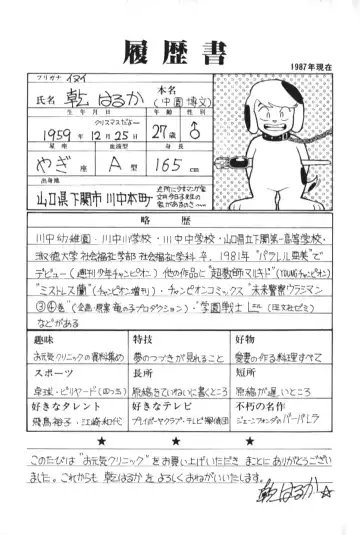 履歴書
1987年現在
フリガナ イヌイ
氏名 乾 はるか
本名
(中園博文)
生年月日
年齢
性別
クリスマスだなー
1959年12月25日
27歳
♂
星座
血液型
身長
やぎ座
A型
165cm
出身県
山口県下関市 川中本町
近所に少女マンガ家
文月今日子先生の
家があるのさ
略歴
川中幼稚園・川中小学校・川中中学校・山口県立下関第一高等学校・
淑徳大学社会福祉学部社会福祉学科卒。1981年“パラレル亜美”で
デビュー(週刊少年チャンピオン)他の作品に“超教師マルキド”(YOUNGチャンピオン)
“ミストレス蘭”(チャンピオン増刊)・チャンピオンコミックス“未来警察ウラシマン
③④巻”(企画・原案竜の子プロダクション)・“学園戦士Lチャン(旺文社ゼミ)
などがある
趣味
特技
好物
お元気クリニックの資料集め
夢のつづきが見れること
愛妻の作る料理すべて
スポーツ
長所
短所
卓球・ビリヤード(四つ玉)
原稿をていねいに書くところ
原稿が遅いところ
好きなタレント
好きなテレビ
不朽の名作
飛鳥裕子・江崎和代
プレイボーヤクラブ・テレビ探偵団
ジェーンフォンダのバーバレラ
★ ★ ★
このたびは“お元気クリニック”をお買い上げいただき まことにありがとうござい
ました。これからも 乾はるか をよろしくおねがいいたします。
乾はるか☆